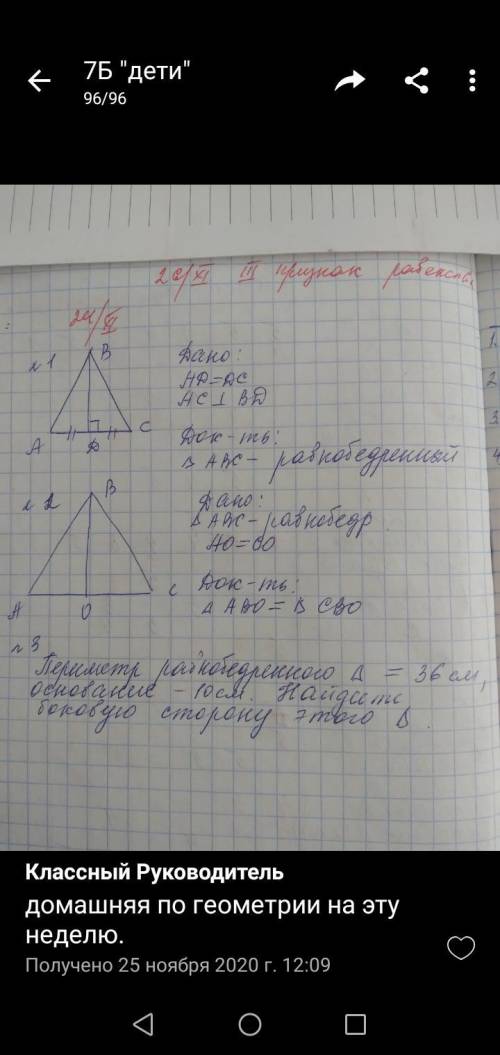 7Б "дети"
96/96
20/XI III признак равенств
24/XI
№1
B
A
D
C
Дано:
AD=DC
AC⊥BD
Док-ть:
△ABC- равнобедренный
№2
B
A
O
C
Дано:
△ABC-равнобедр
AO=CO
Док-ть:
△ABO=△CBO
№3
Периметр равнобедренного △ = 36 см,
основание - 10см. Найдите
боковую сторону этого △.
1.
2
3
4
Классный Руководитель
домашняя по геометрии на эту
неделю.
Получено 25 ноября 2020 г. 12:09